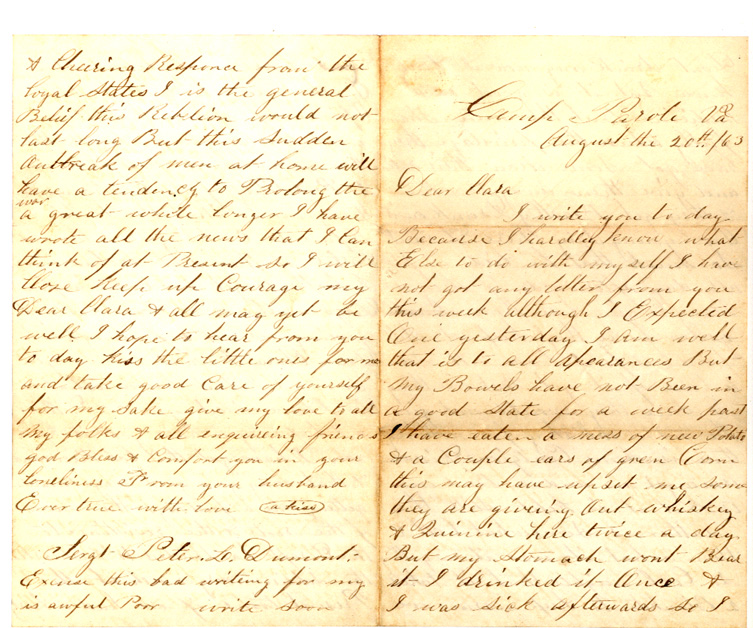 Camp Parole Va
August the 20th /63
Dear Clara
I write you to day
Because I hardley know what
Else to do with myself I have
not got any letter from you
this week although I Expected
One yesterday I am well
that is to all apearances But
my Bowels have not Been in
a good state for a week past
I have eaten a mess of new Potato
& a Couple ears of green Corn
this may have upset me some
they are giveing Out whiskey
& Quinine here twice a day
But my Stomach wont Bear
it I drinked it Once &
I was sick afterwards so I
& Cheering Responce from the
loyal States I is the general
Belief this Rebelion would not
last long But this sudden
Outbreak of men at home will
have a tendency to Prolong the
war
a great whole longer I have
wrote all the news that I Can
think of at Present so I will
Close Keep up Courage my
Dear Clara & all may yet be
well I hope to hear from you
to day kiss the little ones for me
and take good Care of yourself
for my sake give my love to all
my folks & all enqueiring friends
god Bless & Comfort you in your
loneliness From your husband
Ever true with love (a kiss)
Sergt Peter L. Dumont.
Excuse this bad writing for my
is awful Poor write soon